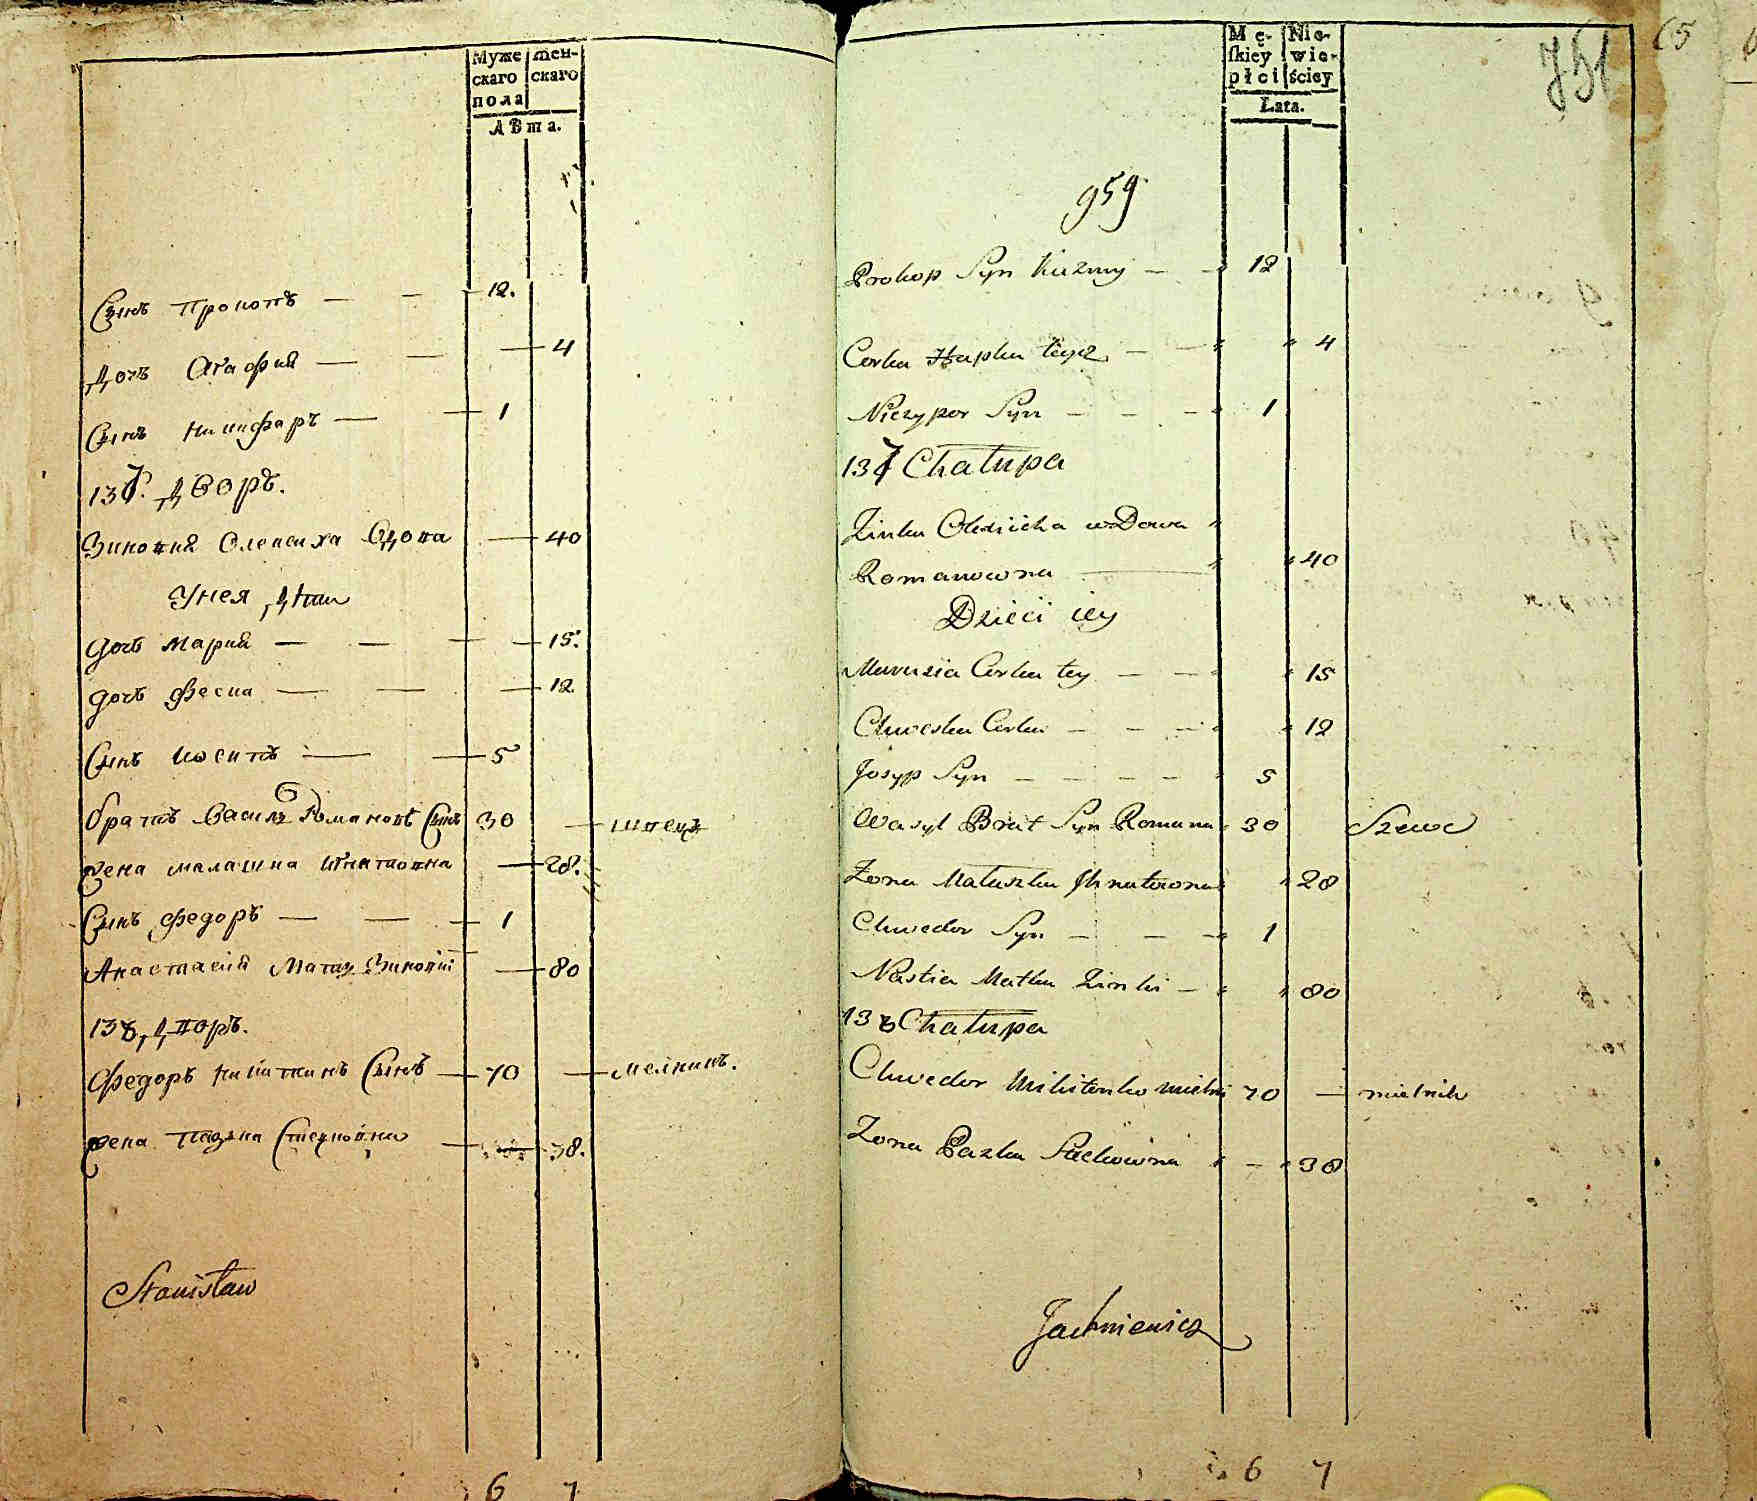 Муже
скаго
пола
жен-
скаго
Лѣта.
Сынъ Прокопъ — — 12.
Дочь Агафия — — 4
Сынъ Никифаръ — — 1
137. Дворъ.
Зиновия Олексиха вдова — 40
Унея дѣти
дочь Мария — — 15.
дочь Феска — — 12.
Сынъ Иосипъ — — 5
братъ Василь Романовъ Сынъ 30 — швецъ
жена малашка Игнатовна — 28.
Сынъ Федоръ — — 1
Анастасия Матка Зиновии — 80
138, Дворъ.
Федоръ Никиткинъ Сынъ — 70 — мелникъ.
жена Пазька Стецковна — 38.
Stanisław
6 7
Mę-
skiey
płci
Nie-
wie-
ściey
Lata.
751
65
959
Prokop Syn Kuzmy — — 12
Corka Hapka tegoż — — 4
Niczypor Syn — — — 1
137 Chałupa
Zinka Olexiicha wDowa
Romanowna — 40
Dzieci iey
Marusia Corka tey — — 15
Chweska Corka — — — 12
Josyp Syn — — — — 5
Wasyl Brat Syn Romana 30 Szewc
Żona Małaszka Ihnatowna 28
Chwedor Syn — — — 1
Nastia Matka Zinki — 80
138 Chałupa
Chwedor Mikitenko mielni 70 — mielnik
Żona Pazka Stećkowna — 38
Jachniewicz
6 7